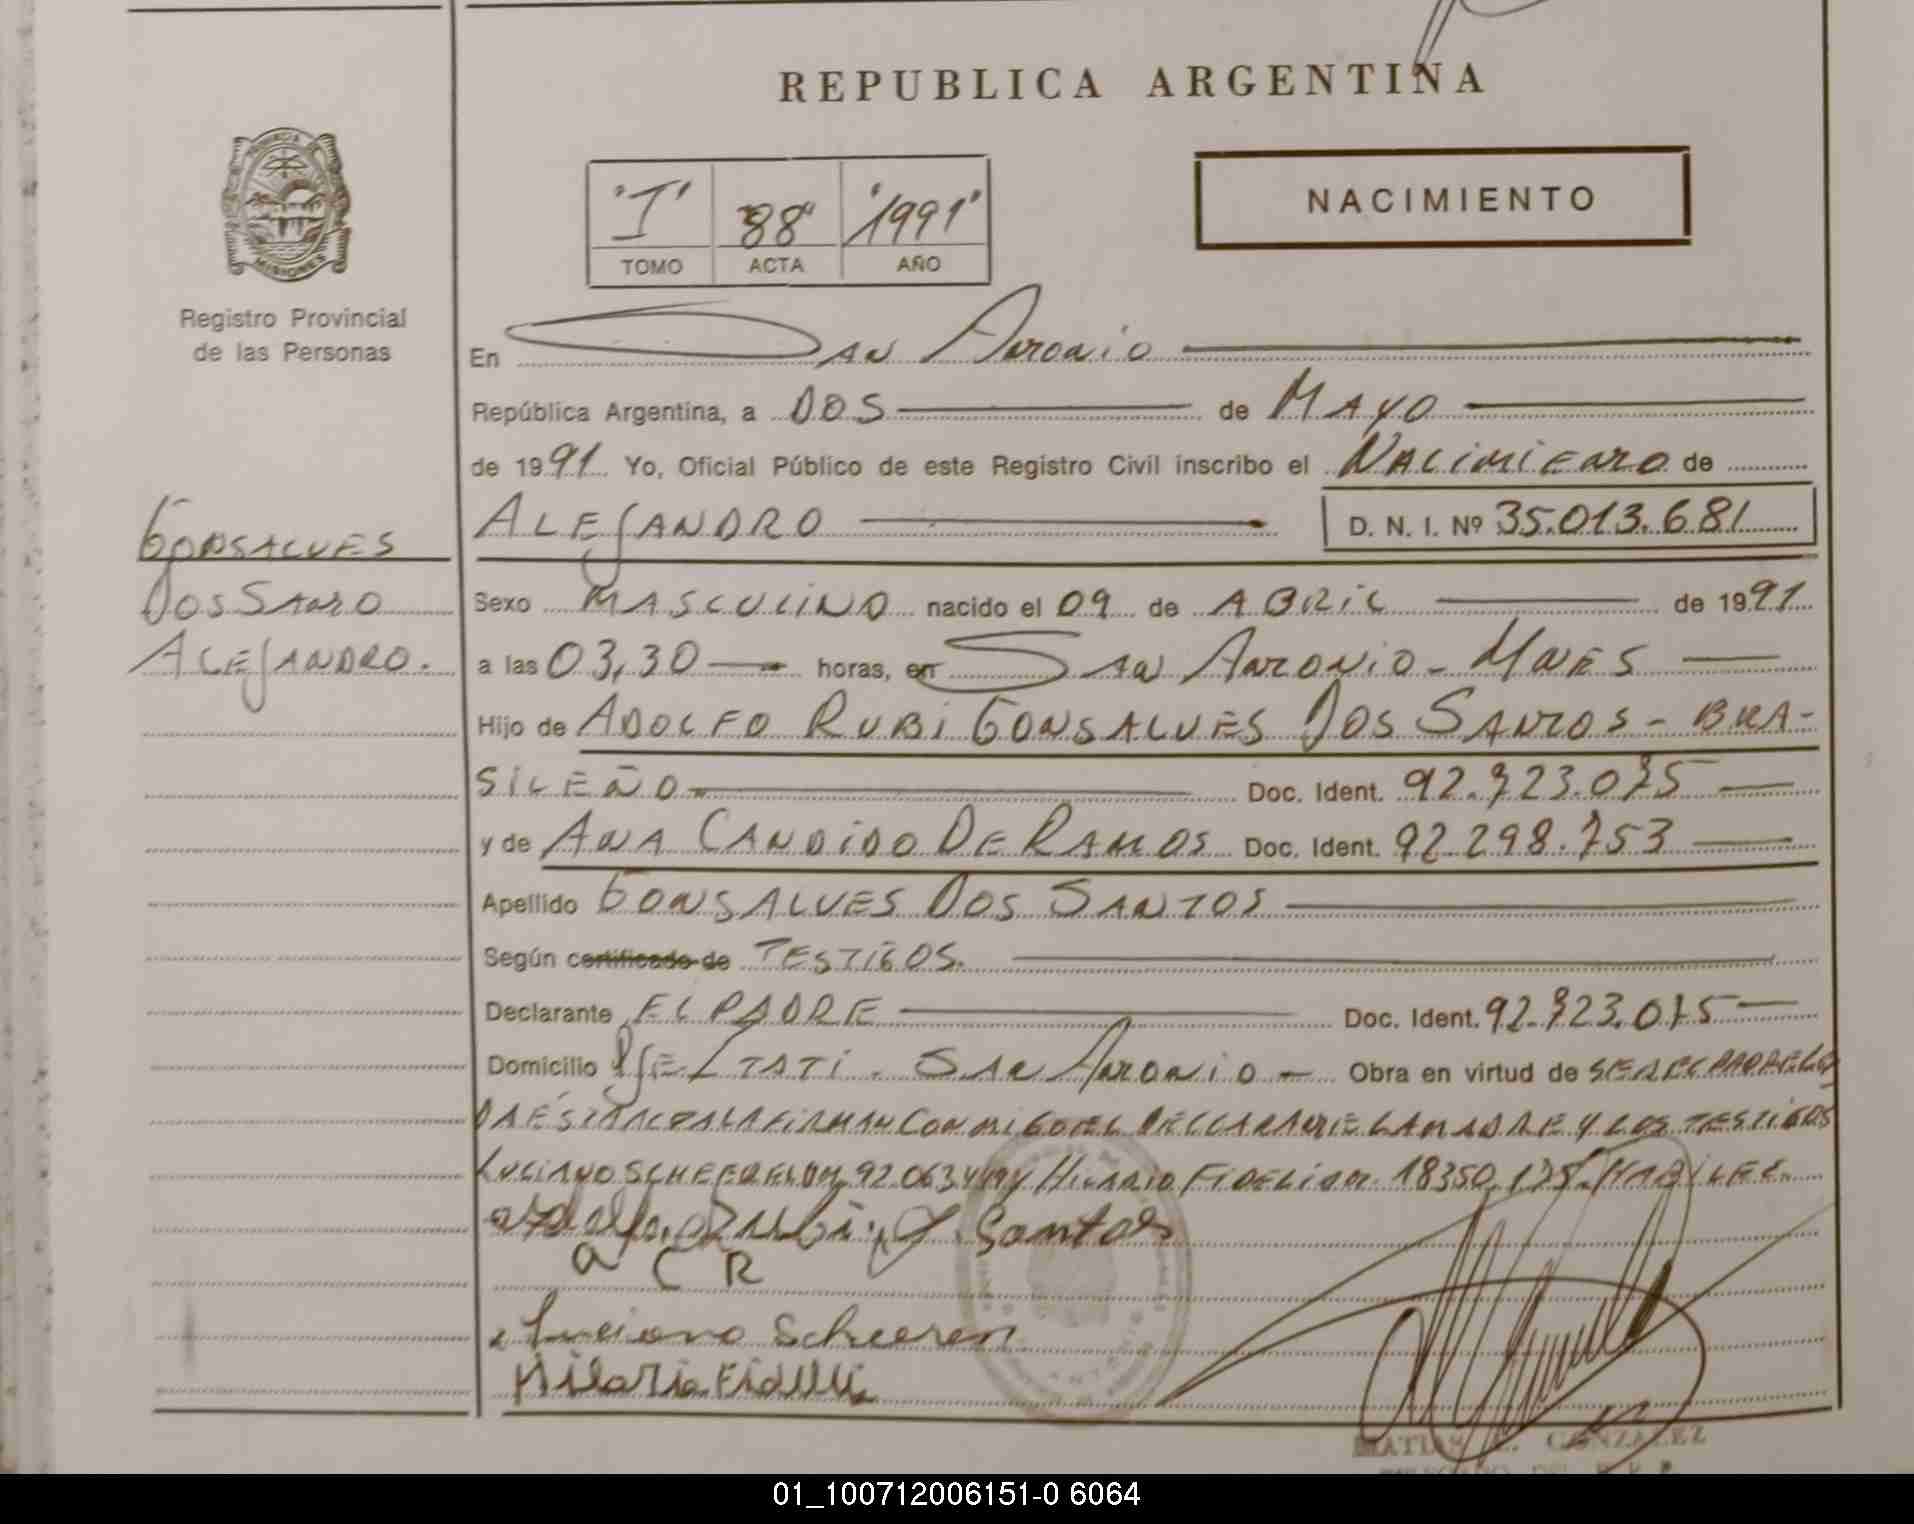 REPUBLICA ARGENTINA
PROVINCIA
MISIONES
Registro Provincial
de las Personas
"I" "88" "1991"
TOMO ACTA AÑO
NACIMIENTO
En San Antonio
República Argentina, a DOS de MAYO
de 1991 Yo, Oficial Público de este Registro Civil inscribo el NACIMIENTO de
ALEJANDRO D. N. I. Nº 35.013.681
GONSALVES
DOS SANTO
ALEJANDRO.
Sexo MASCULINO nacido el 09 de ABRIL de 1991
a las 03,30 horas, en SAN ANTONIO - MNES
Hijo de ADOLFO RUBI GONSALVES DOS SANTOS - BRA-
SILEÑO Doc. Ident. 92.723.075
y de ANA CANDIDO DE RAMOS Doc. Ident. 92.298.753
Apellido GONSALVES DOS SANTOS
Según certificado de TESTIGOS.
Declarante EL PADRE Doc. Ident. 92.723.075
Domicilio PJE ITATI. SAN ANTONIO - Obra en virtud de SER EL PADRE.
ESTA ACTA LA FIRMAN CONMIGO EL DECLARANTE LA MADRE Y LOS TESTIGOS
LUCIANO 92.063 HILARIO FIDELI 18350.175. HABILES.
Rubi Santos
a C R
Luciano Scheeren
Hilario Fidelli
MATIAS GONZALEZ
01_100712006151-0 6064